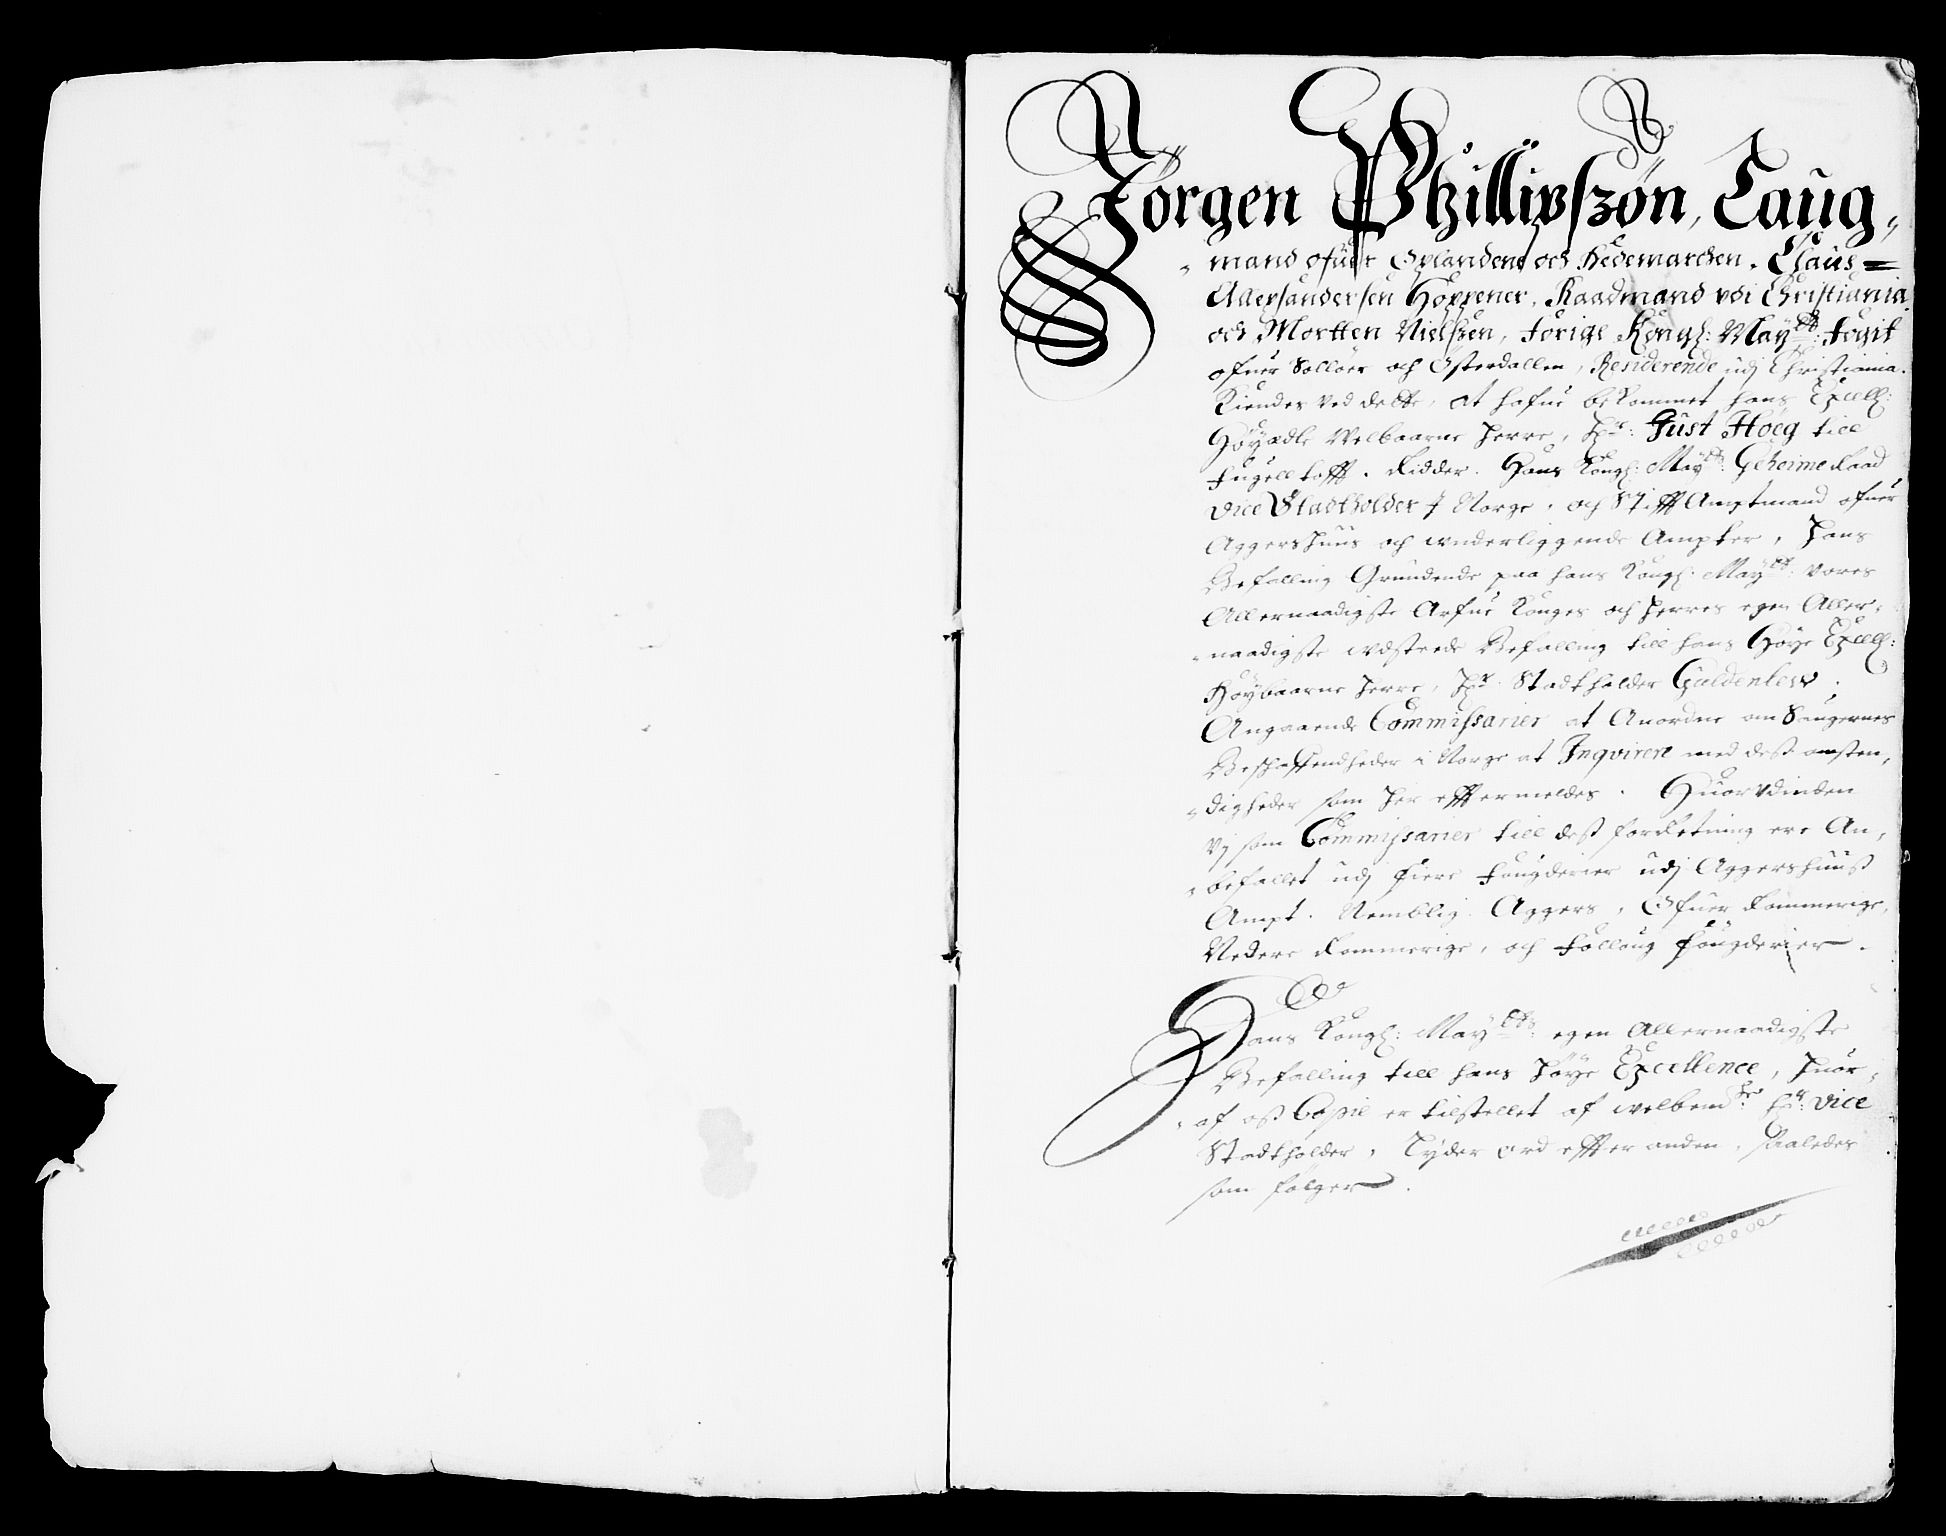 Jörgen Phillipszøn, Laug-
-mand ofuer Oplandene och Hedemarchen, Claus=
Allexsandersen Höppener, Raadmand vdi Christiania
och Mortten Nielszen, forige Kongl: Mayts: fogit
ofuer Solløer och Østerdallen, Residerende udj Christiania.
Kiendes ved dette, at hafue bekommet hans Excell:
Høyædle Welbaarne Herre, Hr: Just Høeg till
Fugelltofft. Ridder. Hans Kongl: Mayts: Geheime Raad
vice Stadtholder i Norge, och StifftAmptmand ofuer
Aggershuus och underliggende Ampter, Hans
Befalling Grundende paa hans Kongl: Mayts: vores
Allernaadigste Arfue Konges och Herres egen Aller-
-naadigste udstrede Befalling till hans Høye Excell:
Høybaarne Herre, Hr: Stadtholder Güldenlew;
Angaaende Commissarier at Anordne om Saugernes
Beschaffendheder i Norge at Inqvirere med dess omsten-
-digheder som her effter meldes. Huorudinden
vj som Commissarier till dess forRetning ere An-
-befallet udj fiere fougderier udj Aggershuuss
Ampt. Nemblig Aggers, Ofuer Rommerige,
Nedere Rommerige, och Follong fougderier.
Hans Kongl: Mayts: egen Allernaadigste
Befalling till hans Høye Excellence, Huor-
-af oss Copie er tilstellet af welbemte: Hr: vice
Stadtholder, Lyder ord effter anden, saaledes
som følger.